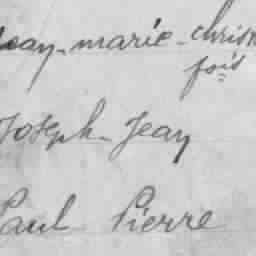 Jean-marie-christ
fois
Joseph-Jean
Paul Pierre